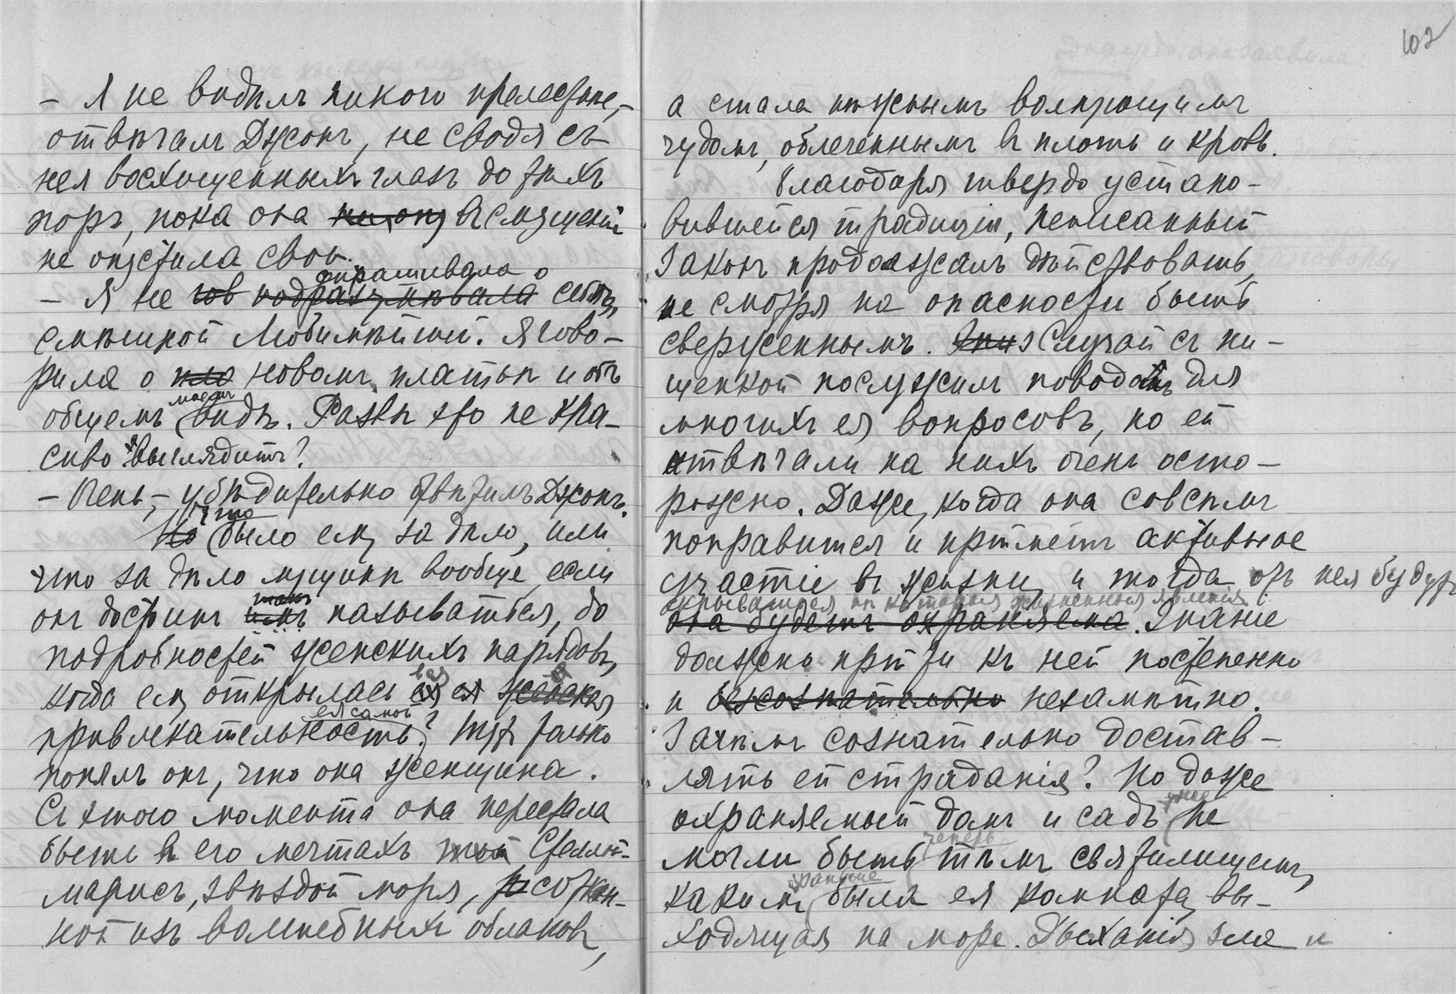 – Я не видѣлъ никого прелестнѣе, –
отвѣчалъ Джонъ, не сводя съ
нея восхищенныхъ глазъ до тѣхъ
поръ, пока она въ смущеніи
не опустила свои.
спрашивала о
– Я не гов подразумѣвала себѣ,
смѣшной Любимѣйшій. Я гово–
рила о новомъ платьѣ и объ
моемъ
общемъ видѣ. Развѣ это не кра–
сиво выглядитъ?
– Очень, – убѣдительно отвѣтилъ Джонъ.
Что
Но было ему за дѣло, или
что за дѣло мущинѣ вообще, если
такъ
онъ достоинъ имъ называться, до
подробностей женскихъ нарядовъ,
когда ему открылась ея
ея самой
привлекательность? Тутъ только
понялъ онъ, что она женщина.
Съ этого момента она перестала
быть въ его мечтахъ Стеллой-
марисъ, звѣздой моря, создан–
ной изъ волшебныхъ облаковъ,
102
а стала нѣжнымъ волнующимъ
чудомъ, облеченнымъ въ плоть и кровь.
Благодаря твердо устано–
вившейся традиціи, неписанный
Законъ продолжалъ дѣйствовать,
не смотря на опасности быть
свергженнымъ. Случай съ ни–
щенкой послужилъ поводомъ для
многихъ ея вопросовъ, но ей
отвѣчали на нихъ очень осто–
рожно. Даже, когда она совсѣмъ
поправится и приметъ активное
участіе въ жизни, и тогда отъ нея будутъ
скрываться нѣкоторыя жизненныя явленія
она будетъ охраняема. Знаніе
должно прійти къ ней постепенно
и безсознательно незамѣтно.
Зачѣмъ сознательно достав–
лять ей страданія? Но даже
уже
охраняемый домъ и садъ не
теперь
могли быть тѣмъ святилищемъ,
раньше
какимъ была ея комната, вы–
ходящая на море. Дыханія зла и